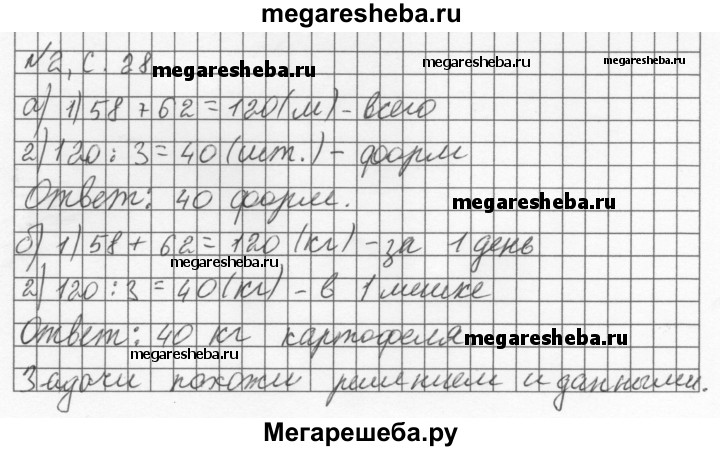 megaresheba.ru
№2, с. 28
megaresheba.ru
megaresheba.ru
megaresheba.ru
а) 1) 58 + 62 = 120 (м) - всего
2) 120 : 3 = 40 (шт.) - форм
Ответ: 40 форм.
megaresheba.ru
б) 1) 58 + 62 = 120 (кг) - за 1 день
megaresheba.ru
2) 120 : 3 = 40 (кг) - в 1 мешке
Ответ: 40 кг картофеля
megaresheba.ru
megaresheba.ru
Задачи похожи решением и данными.
Мегарешеба.ру